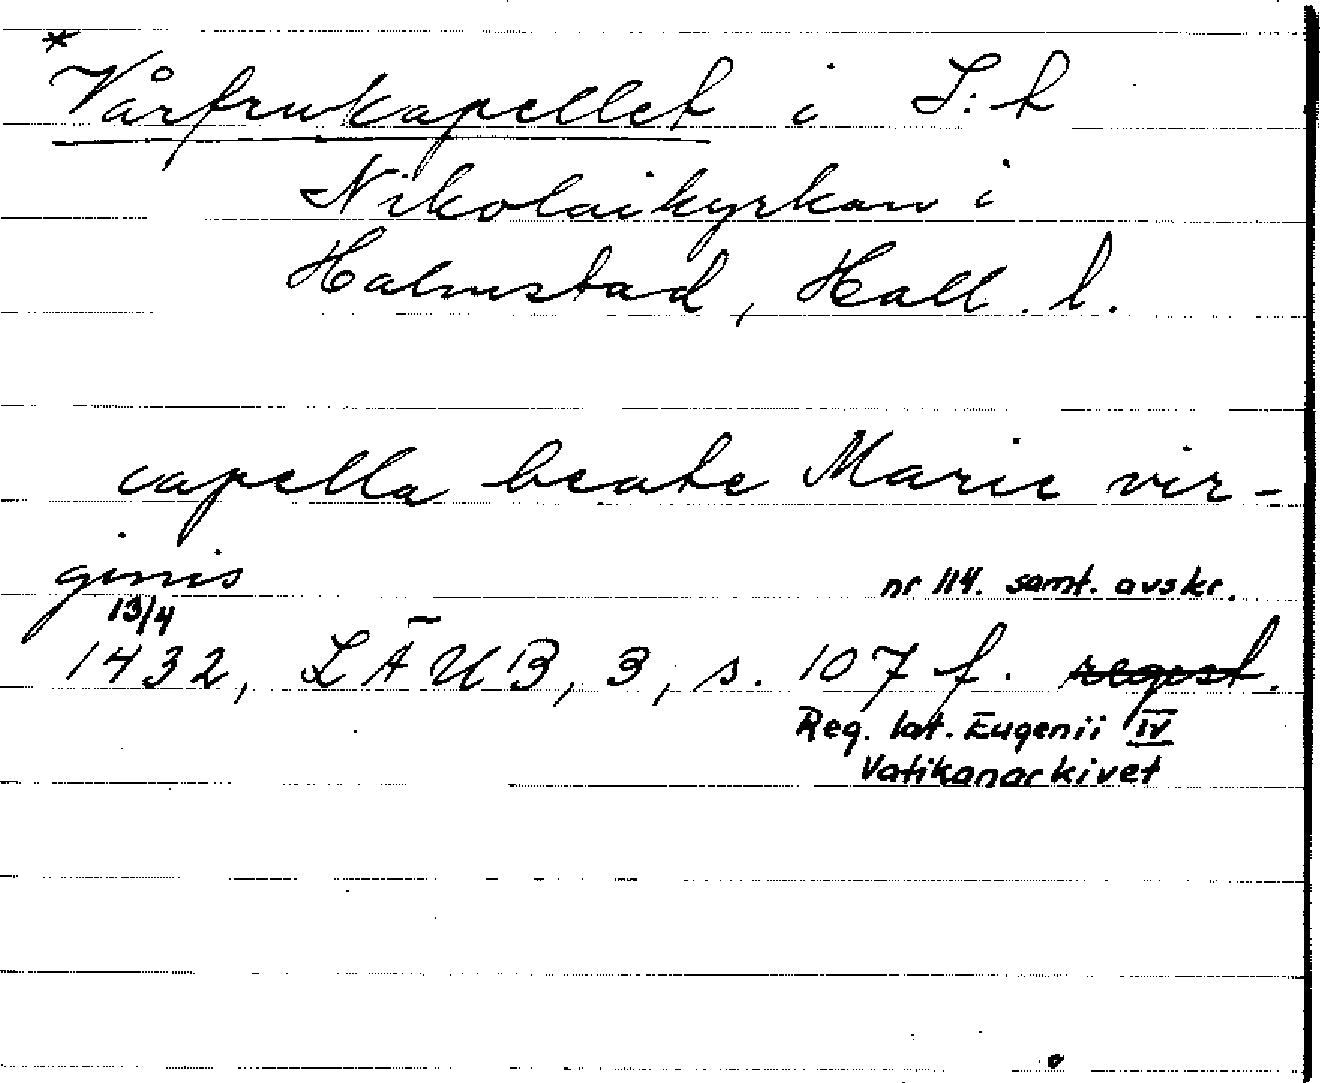 *
Vårfrukapellet i S:t
Nikolaikyrkan i
Halmstad, Hall. l.
capella beate Marie vir-
ginis
nr 114. samt. avskr.
13/4
1432, LÄUB, 3, s. 107 f. regest.
Reg. lat. Eugenii IV
Vatikanarkivet